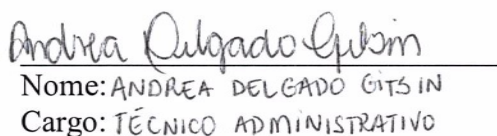 Andrea Delgado Gitsin
Nome: ANDREA DELGADO GITSIN
Cargo: TÉCNICO ADMINISTRATIVO